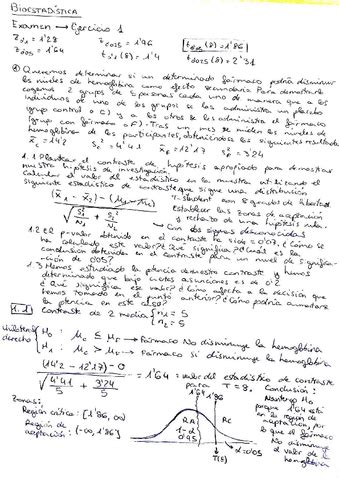 BIOESTADÍSTICA
Examen → Ejercicio 1
z0'1 = 1'28 z0'025 = 1'96 t0'05 (8) = 1'86
z0'05 = 1'64 t0'1 (8) = 1'4 t0'025 (8) = 2'31
① Queremos determinar si un determinado fármaco podría disminuir
los niveles de hemoglobina como efecto secundario. Para demostrarlo
cogemos 2 grupos de 5 personas cada uno de manera que a los
individuos de uno de los grupos se les administra un placebo
(grupo control o C) y a los otros se les administra el fármaco
(grupo con fármaco o F). Tras un mes se miden los niveles de
hemoglobina de los participantes, obteniéndose los siguientes resultados
x̄c = 14'2 S²c = 4'41 x̄F = 12'17 S²F = 3'24
1.1 Plantear el contraste de hipótesis apropiado para demostrar
nuestra hipótesis de investigación.
Calcular el valor del estadístico en la muestra utilizando el
siguiente estadístico de contraste que sigue una distribución
(x̄1 - x̄2) - (μ1 - μ2) T-student con 8 grados de libertad
√ S²1/n1 + S²2/n2 establecer las zonas de aceptación
y rechazo de una hipótesis nula.
→ Con dos sigmas desconocidas
1.2 El p-valor obtenido en el contraste ha sido 0'07. ¿Cómo se
ha calculado este valor? ¿Qué significa? ¿Cuál es la
conclusión obtenida en el contraste para un nivel de significa-
ción de 0'05?
1.3 Hemos estudiado la potencia de nuestro contraste y hemos
determinado que bajo ciertas asunciones es de 0'2
¿Qué significa ese valor? ¿Cómo afecta a la decisión que
hemos tomado en el punto anterior? ¿Cómo podría aumentarse
la potencia en este caso?
1.1 Contraste de 2 medias n1 = 5
n2 = 5
Unilateral derecho H0: μc ≤ μF → Fármaco No disminuye la hemoglobina
H1: μc > μF → Fármaco Sí disminuye la hemoglobina
(14'2 - 12'17) - 0 = 1'64 = valor del estadístico de contraste
√ 4'41/5 + 3'24/5 para T = 8.
Conclusión:
Mantengo H0
porque 1'64 está
en la región de
aceptación, por
lo que el fármaco
No disminuye
el valor de
hemoglobina
Zonas:
Región crítica: [1'86, ∞)
Región de
aceptación: (-∞, 1'86]
1'64 1'86
RA RC
1-α
0'95
T(8)
α = 0'05